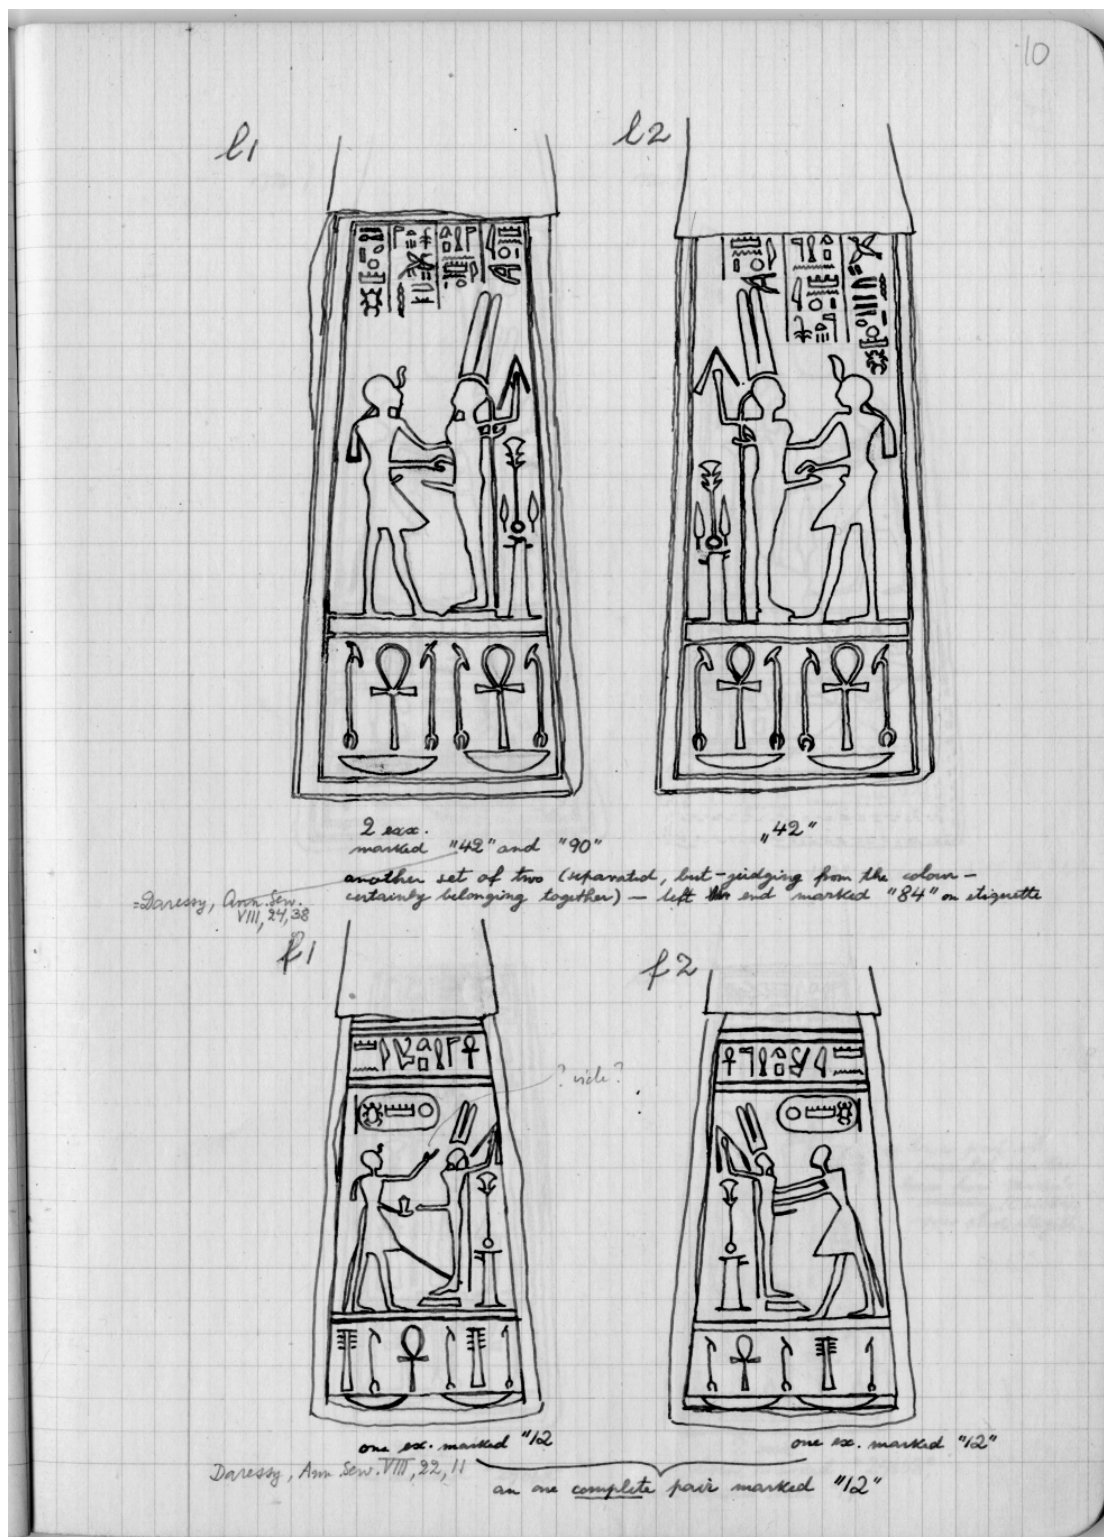 10
l1
l2
2 exx.
marked "42" and "90"
„42"
another set of two (separated, but - judging from the colour -
certainly belonging together) — left end marked "84" on etiquette
=Daressy, Ann. Serv.
VIII, 24, 38
f1
f2
? vide ?
one ex. marked "12
one ex. marked "12"
Daressy, Ann Serv. VIII, 22, 11
an one complete pair marked "12"